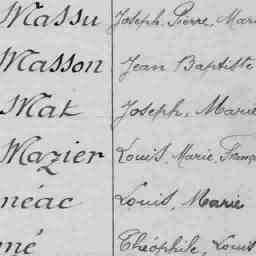 Massu Joseph, Pierre, Mari
Masson Jean Baptiste
Mat Joseph, Marie
Mazier Louis, Marie, Franç
néac Louis, Marie
mé Théophile, Louis